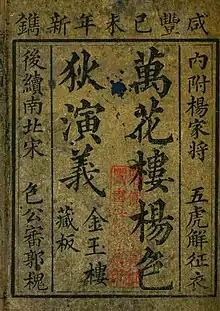 咸豐己未年新鐫
內附楊家將 五虎解征衣
萬花樓楊包
狄演義
金玉樓
藏板
後續南北宋 包公審郭槐